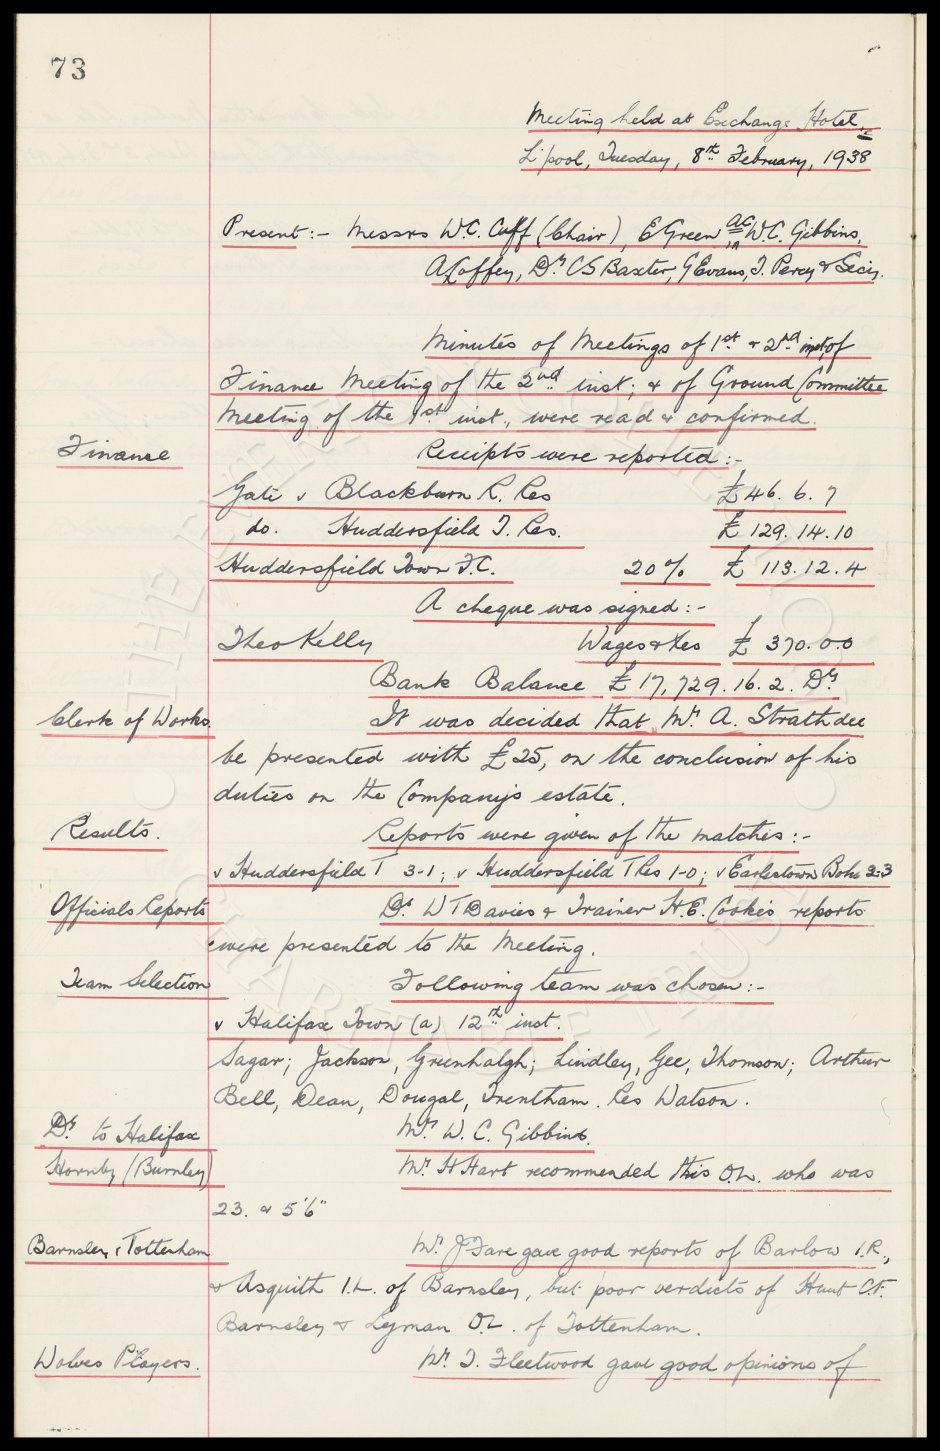 73
Meeting held at Exchange Hotel,
L'pool, Tuesday, 8th February, 1938
Present:- Messrs W.C. Cuff (Chair), E Green W.C. Gibbins,
A Coffey, Dr. C S Baxter, G Evans, T. Percy & Secy.
Minutes of Meetings of 1st & 2nd inst, of
Finance Meeting of the 2nd inst; & of Ground Committee
Meeting of the 1st inst., were read & confirmed.
Finance Receipts were reported:-
Gate v Blackburn R. Res £46. 6. 7
do. Huddersfield T. Res. £129. 14. 10
Huddersfield Town F.C. 20% £113. 12. 4
A cheque was signed:-
Theo Kelly Wages & Xes £370. 0. 0
Bank Balance £17,729. 16. 2. Dr.
Clerk of Works. It was decided that Mr. A. Strathdee
be presented with £25, on the conclusion of his
duties on the Company's estate.
Results. Reports were given of the matches:-
v Huddersfield T 3-1; v Huddersfield T Res 1-0; v Earlestown Boho 2-3
Officials Reports Dr. W T Davies & Trainer H.E. Cooke's reports
were presented to the Meeting.
Team Selection Following team was chosen:-
v Halifax Town (a) 12th inst.
Sagar; Jackson, Greenhalgh; Lindley, Gee, Thomson; Arthur
Bell, Dean, Dougal, Trentham. Res Watson.
Dr. to Halifax Mr. W. C. Gibbins.
Hornby (Burnley) Mr. H Hart recommended this O.L. who was
23. & 5'6"
Barnsley v Tottenham Mr. J Fare gave good reports of Barlow I.R.,
& Asquith I.L. of Barnsley, but poor verdicts of Hunt C.F.
Barnsley & Lyman O.L. of Tottenham.
Wolves Players. Mr. T. Fleetwood gave good opinions of
THE EVERTON COLLECTION
CHARITABLE TRUST